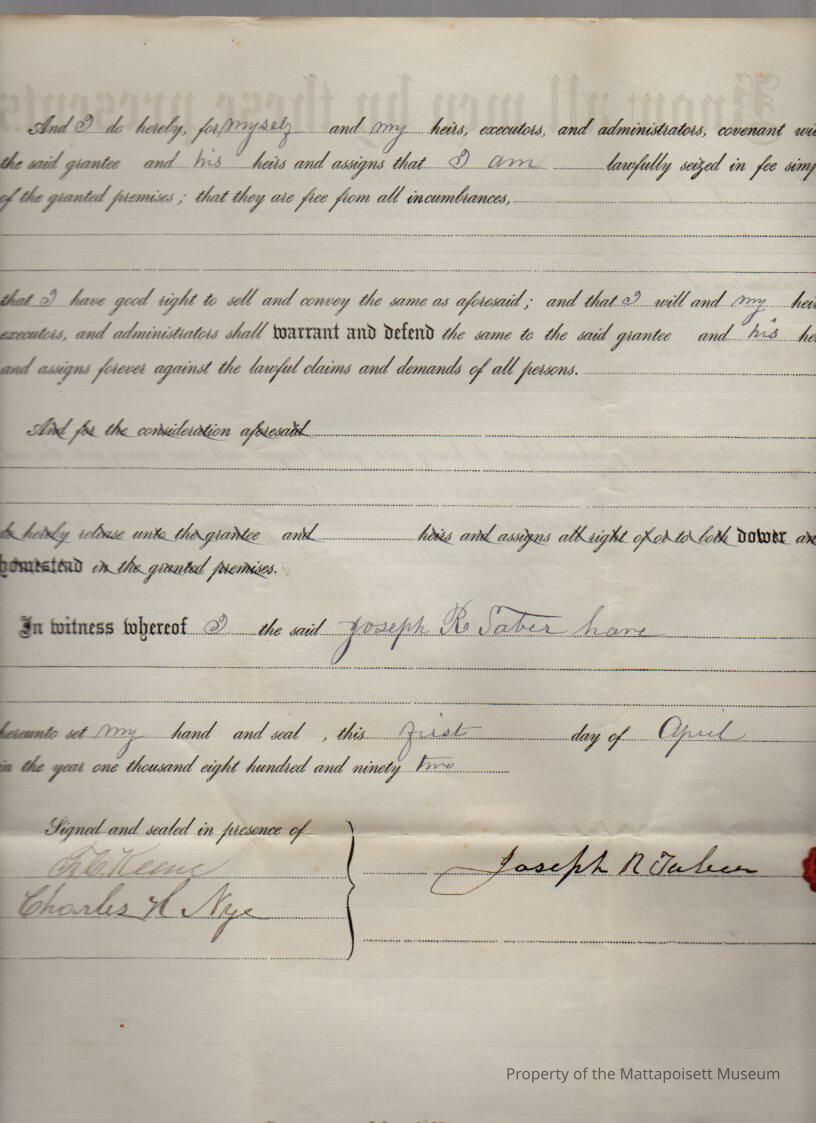 And I do hereby, for myself and my heirs, executors, and administrators, covenant wi
the said grantee and his heirs and assigns that I am lawfully seized in fee simp
of the granted premises; that they are free from all incumbrances,
that I have good right to sell and convey the same as aforesaid; and that I will and my hei
executors, and administrators shall warrant and defend the same to the said grantee and his he
and assigns forever against the lawful claims and demands of all persons.
And for the consideration aforesaid
do hereby release unto the grantee and heirs and assigns all right of or to both dower an
homestead in the granted premises.
In witness whereof I the said Joseph R Taber have
hereunto set my hand and seal , this first day of April
in the year one thousand eight hundred and ninety two
Signed and sealed in presence of
Keene
Joseph R Taber
Charles H Nye
Property of the Mattapoisett Museum